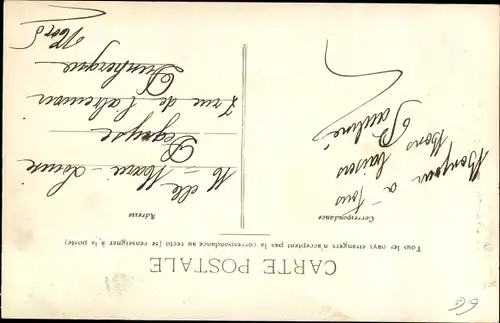 CARTE POSTALE
Tous les pays étrangers n'acceptent pas la correspondance au recto (se renseigner à la poste)
Correspondance
Adresse
Bonjour à Tous
Bons baisers
Pauline
Melle Marie-Louise
7 rue de
Dunkerque
Nord
6 e